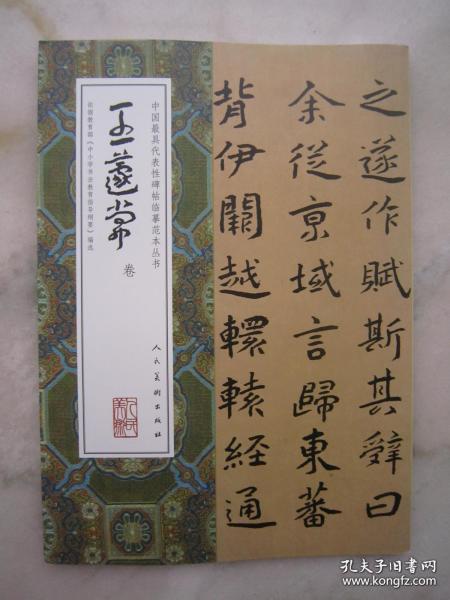 之遂作賦斯其辭曰
余從京域言歸東蕃
背伊闕越轘轅經通
中国最具代表性碑帖临摹范本丛书
王蘧常
卷
依据教育部《中小学书法教育指导纲要》编选
人民美術出版社
孔夫子旧书网
www.kongfz.com